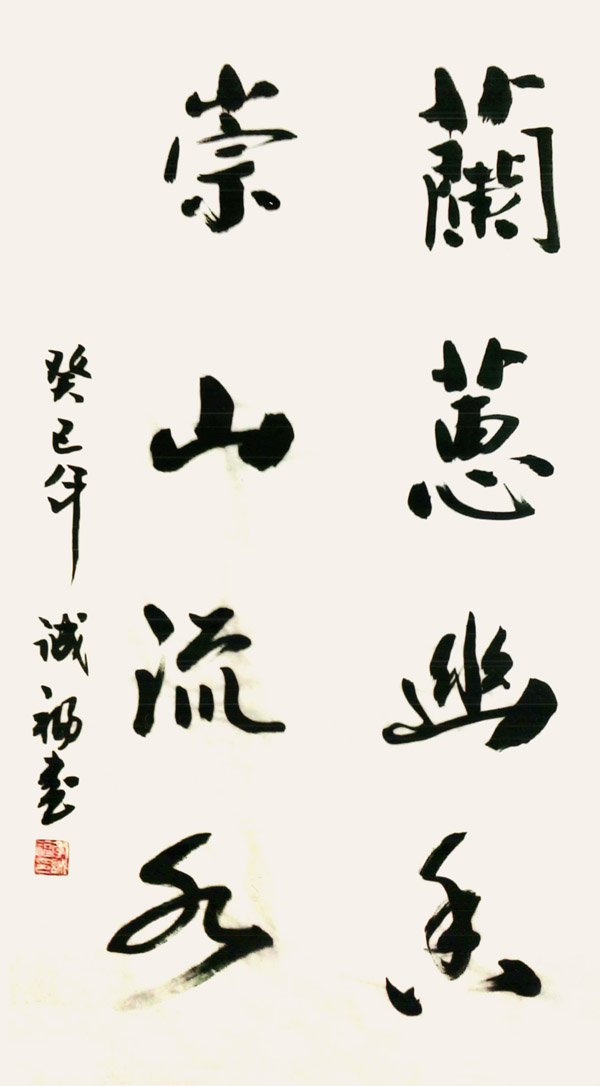 蘭蕙幽香
崇山流水
癸巳年 诚福書